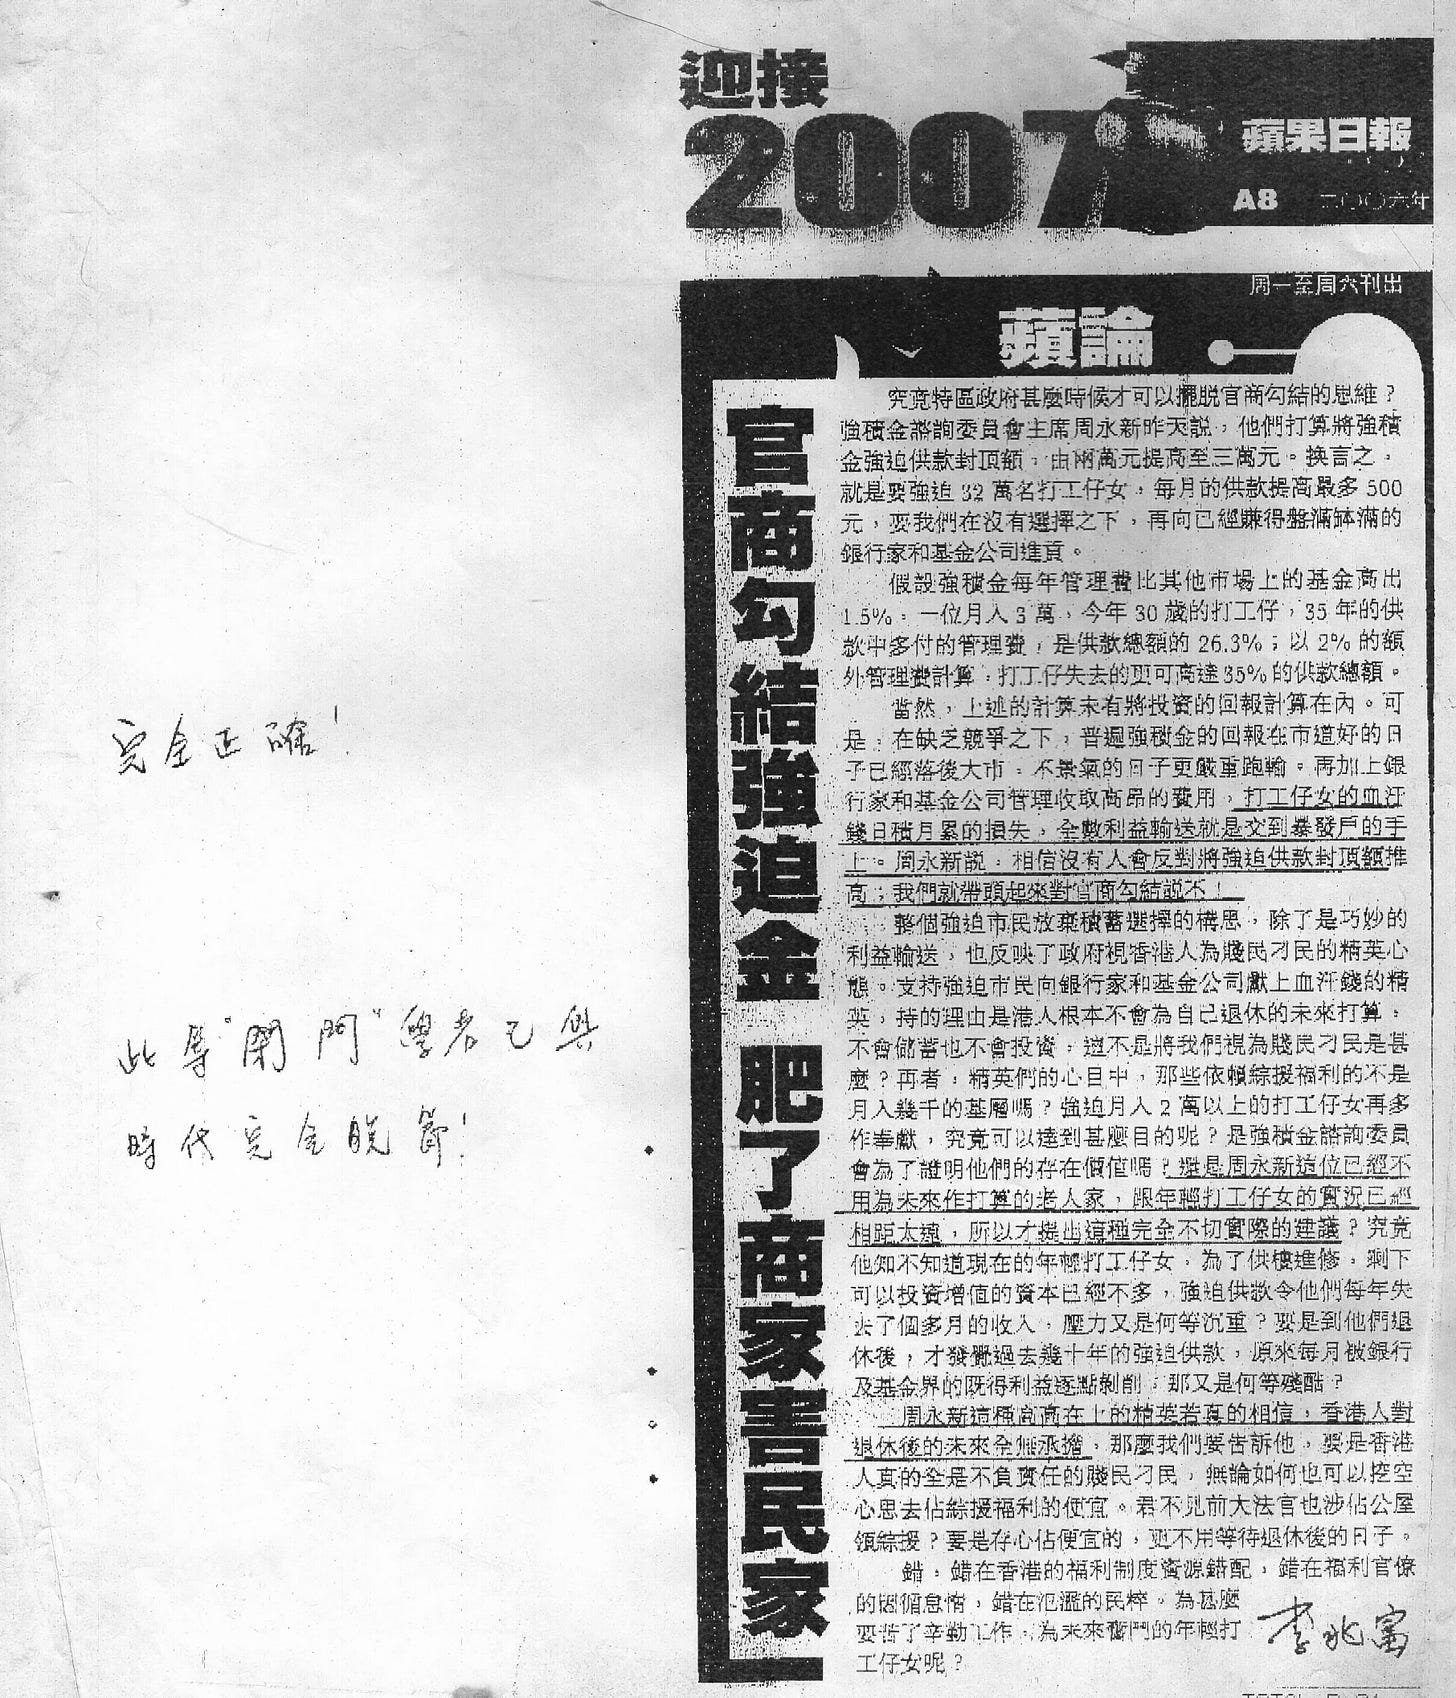 迎接
2007
蘋果日報
A8 二〇〇六年
周一至周六刊出
蘋論
官商勾結強迫金 肥了商家害民家
究竟特區政府甚麼時候才可以擺脫官商勾結的思維？
強積金諮詢委員會主席周永新昨天說，他們打算將強積
金強迫供款封頂額，由兩萬元提高至三萬元。換言之，
就是要強迫 32 萬名打工仔女，每月的供款提高最多 500
元，要我們在沒有選擇之下，再向已經賺得盤滿缽滿的
銀行家和基金公司進貢。
假設強積金每年管理費比其他市場上的基金高出
1.5%，一位月入 3 萬，今年 30 歲的打工仔，35 年的供
款中多付的管理費，是供款總額的 26.3%；以 2% 的額
外管理費計算，打工仔失去的更可高達 35% 的供款總額。
當然，上述的計算未有將投資的回報計算在內。可
是，在缺乏競爭之下，普遍強積金的回報在市道好的日
子已經落後大市，不景氣的日子更嚴重跑輸。再加上銀
行家和基金公司管理收取高昂的費用，打工仔女的血汗
錢日積月累的損失，全數利益輸送就是交到暴發戶的手
上。周永新說，相信沒有人會反對將強迫供款封頂額推
高；我們就帶頭起來對官商勾結說不！
整個強迫市民放棄積蓄選擇的構思，除了是巧妙的
利益輸送，也反映了政府視香港人為賤民刁民的精英心
態。支持強迫市民向銀行家和基金公司獻上血汗錢的精
英，持的理由是港人根本不會為自己退休的未來打算，
不會儲蓄也不會投資，這不是將我們視為賤民刁民是甚
麼？再者，精英們的心目中，那些依賴綜援福利的不是
月入幾千的基層嗎？強迫月入 2 萬以上的打工仔女再多
作奉獻，究竟可以達到甚麼目的呢？是強積金諮詢委員
會為了證明他們的存在價值嗎？還是周永新這位已經不
用為未來作打算的老人家，跟年輕打工仔女的實況已經
相距太遠，所以才提出這種完全不切實際的建議？究竟
他知不知道現在的年輕打工仔女，為了供樓進修，剩下
可以投資增值的資本已經不多，強迫供款令他們每年失
去了個多月的收入，壓力又是何等沉重？要是到他們退
休後，才發覺過去幾十年的強迫供款，原來每月被銀行
及基金界的既得利益逐點剝削，那又是何等殘酷？
周永新這種高高在上的精英若真的相信，香港人對
退休後的未來全無承擔，那麼我們要告訴他，要是香港
人真的全是不負責任的賤民刁民，無論如何也可以挖空
心思去佔綜援福利的便宜。君不見前大法官也涉佔公屋
領綜援？要是存心佔便宜的，更不用等待退休後的日子。
錯，錯在香港的福利制度資源錯配，錯在福利官僚
的因循怠惰，錯在氾濫的民粹。為甚麼
要苦了辛勤工作，為未來奮鬥的年輕打
工仔女呢？
李兆富
完全正確！
此等"閉門"學者已與
時代完全脫節！